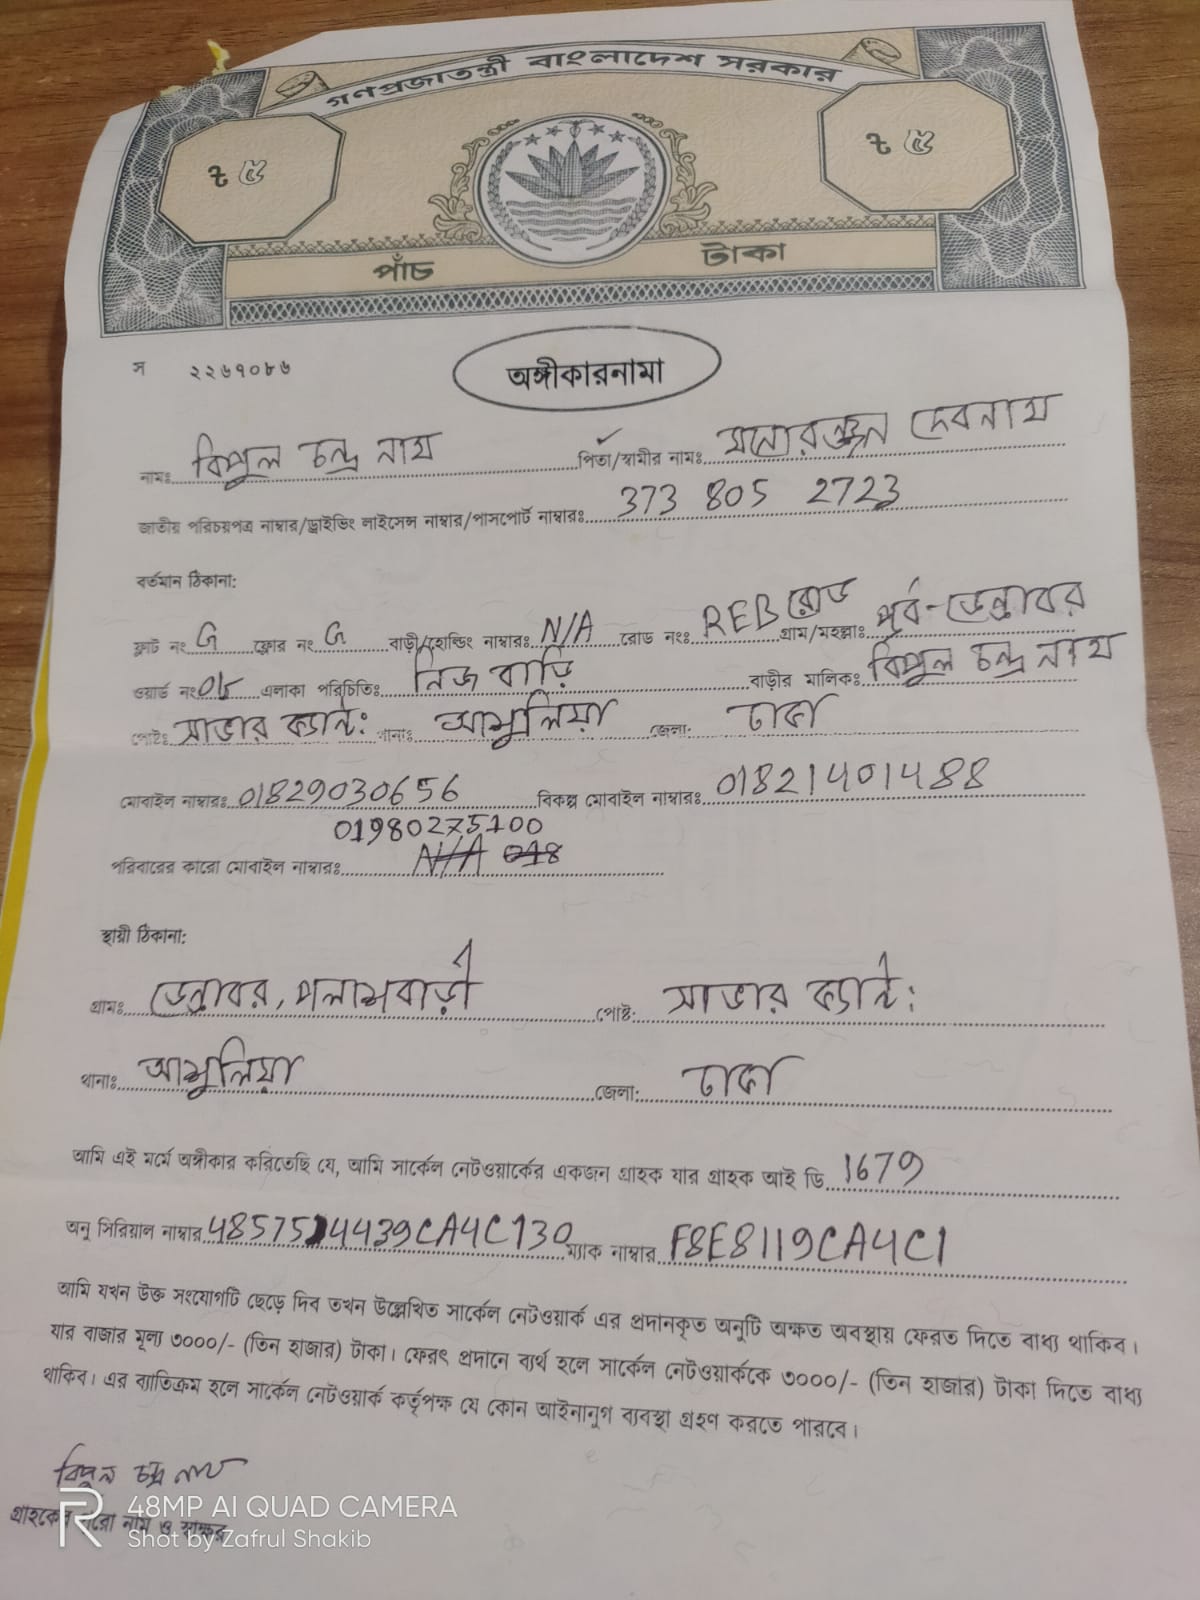 গণপ্রজাতন্ত্রী বাংলাদেশ সরকার
৳ ৫ ৳ ৫
পাঁচ টাকা
স ২২৬৭০৮৬
অঙ্গীকারনামা
নামঃ বিপুল চন্দ্র নাথ পিতা/স্বামীর নামঃ মনোরঞ্জন দেবনাথ
জাতীয় পরিচয়পত্র নাম্বার/ড্রাইভিং লাইসেন্স নাম্বার/পাসপোর্ট নাম্বারঃ 373 805 2723
বর্তমান ঠিকানা:
ফ্লাট নং G ফ্লোর নং G বাড়ী/হোল্ডিং নাম্বারঃ N/A রোড নংঃ REB রোড গ্রাম/মহল্লাঃ পূর্ব-ডেন্ডাবর
ওয়ার্ড নংঃ এলাকা পরিচিতিঃ নিজ বাড়ি বাড়ীর মালিকঃ বিপুল চন্দ্র নাথ
পোষ্টঃ সাভার ক্যান্ট: থানাঃ আশুলিয়া জেলা: ঢাকা
মোবাইল নাম্বারঃ 01829030656 বিকল্প মোবাইল নাম্বারঃ 01821401488
01980275100
পরিবারের কারো মোবাইল নাম্বারঃ N/A 018
স্থায়ী ঠিকানা:
গ্রামঃ ডেন্ডাবর, পলাশবাড়ী পোষ্ট: সাভার ক্যান্ট:
থানাঃ আশুলিয়া জেলা: ঢাকা
আমি এই মর্মে অঙ্গীকার করিতেছি যে, আমি সার্কেল নেটওয়ার্কের একজন গ্রাহক যার গ্রাহক আই ডি 1679
অনু সিরিয়াল নাম্বার ম্যাক নাম্বার F8E8119CA4C1
আমি যখন উক্ত সংযোগটি ছেড়ে দিব তখন উল্লেখিত সার্কেল নেটওয়ার্ক এর প্রদানকৃত অনুটি অক্ষত অবস্থায় ফেরত দিতে বাধ্য থাকিব।
যার বাজার মূল্য ৩০০০/- (তিন হাজার) টাকা। ফেরৎ প্রদানে ব্যর্থ হলে সার্কেল নেটওয়ার্ককে ৩০০০/- (তিন হাজার) টাকা দিতে বাধ্য
থাকিব। এর ব্যাতিক্রম হলে সার্কেল নেটওয়ার্ক কর্তৃপক্ষ যে কোন আইনানুগ ব্যবস্থা গ্রহণ করতে পারবে।
বিপুল চন্দ্র নাথ
গ্রাহকের নাম ও স্বাক্ষর
48MP AI QUAD CAMERA
Shot by Zafrul Shakib